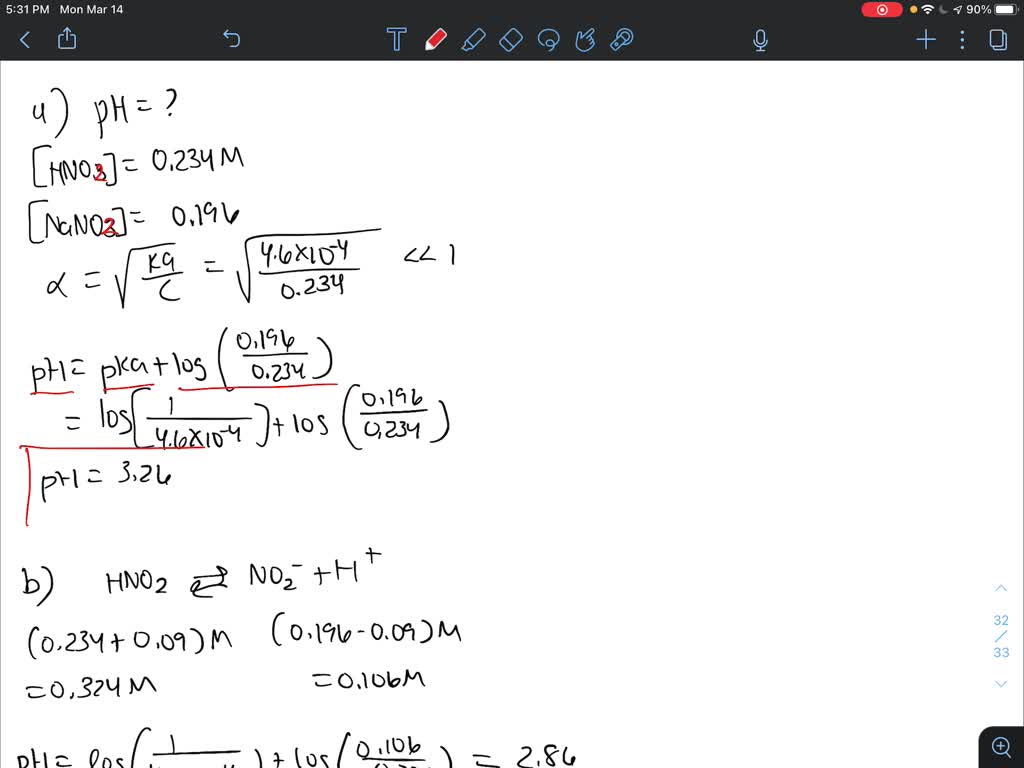 5:31 PM Mon Mar 14
90%
a) pH = ?
[HNO3] = 0.234 M
[NaNO2] = 0.196
α = √(Ka/C) = √(4.6×10⁻⁴/0.234) << 1
pH = pKa + log (0.196/0.234)
= log [1/4.6×10⁻⁴] + log (0.196/0.234)
pH = 3.26
b) HNO2 ⇌ NO2⁻ + H⁺
(0.234 + 0.09) M (0.196 - 0.09) M
= 0.324 M = 0.106 M
pH = log ( 1 ) + log ( 0.106 ) = 2.86
32
/
33